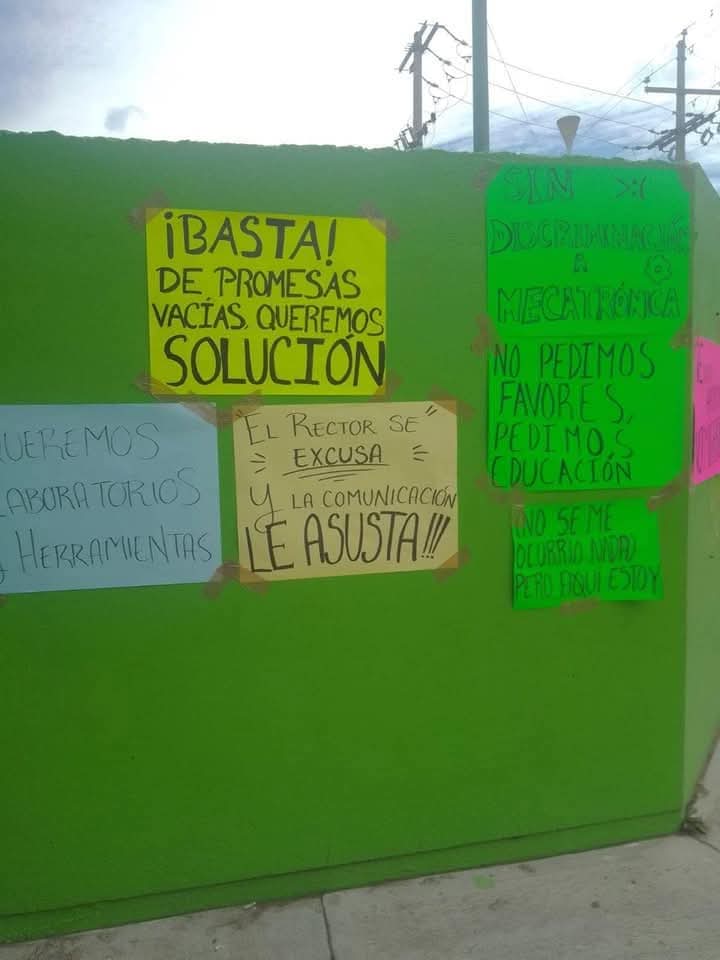 ¡BASTA!
DE PROMESAS
VACÍAS, QUEREMOS
SOLUCIÓN
QUEREMOS
LABORATORIOS
y HERRAMIENTAS
EL RECTOR SE
EXCUSA
Y LA COMUNICACIÓN
LE ASUSTA!!!
SIN >:(
DISCRIMINACIÓN
A
MECATRÓNICA
NO PEDIMOS
FAVORES,
PEDIMOS
EDUCACIÓN
(NO SE ME
OCURRIO NADA)
PERO AQUI ESTOY